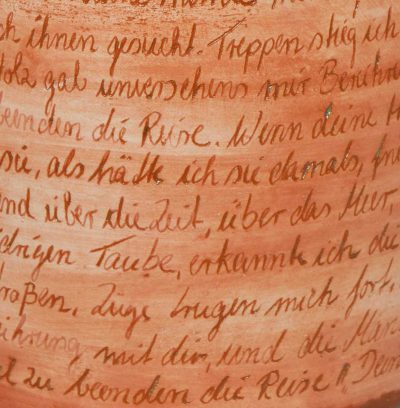 ch ihnen gesucht. Treppen stieg ich
Holz gab unversehens mir Berühr
beenden die Reise. Wenn deine
sie, als hätte ich sie damals,
und über die Zeit, über das Meer,
drigen Taube, erkannte ich die
roßen. Züge trugen mich fort.
ührung mit dir, und die
el zu beenden die Reise",